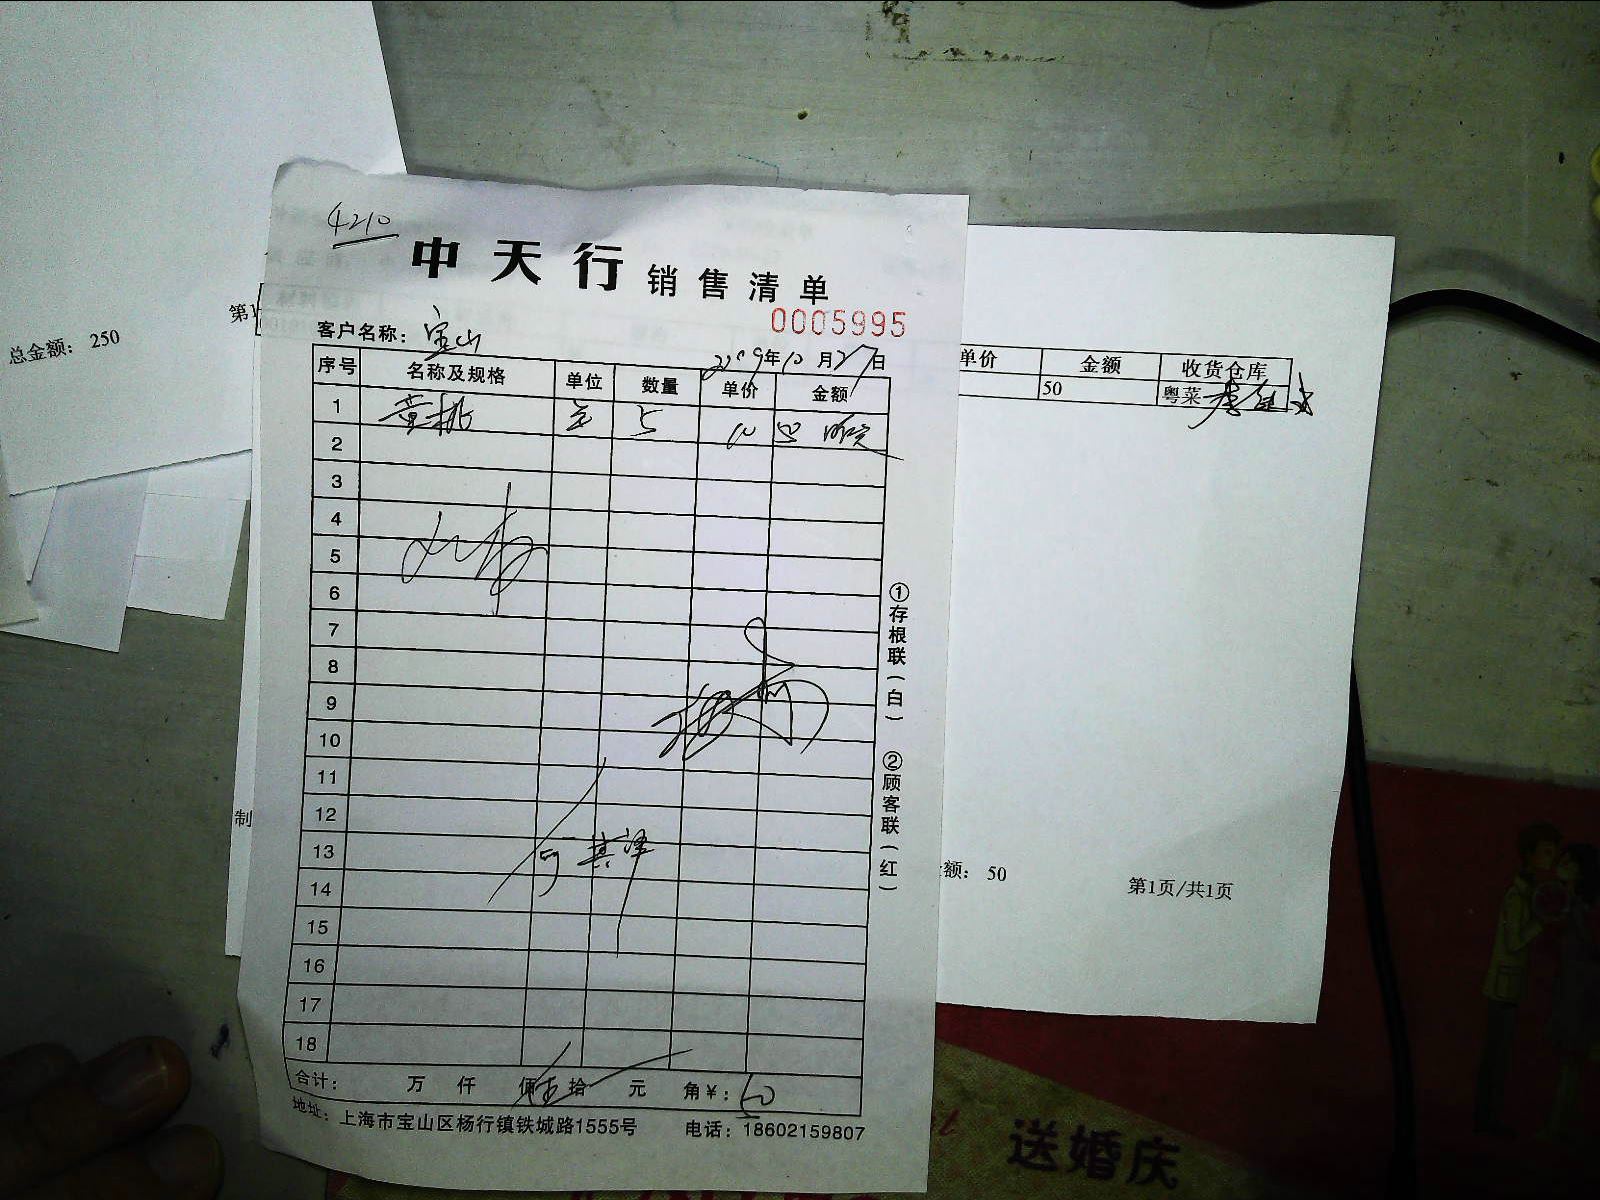 4210
中天行 销售清单
0005995
客户名称: 宝山
2019年10月27日
序号 名称及规格 单位 数量 单价 金额
1 黄桃 5 10 50
2
3
4
5
6
7
8
9
10
11
12
13
14
15
16
17
18
合计: 万 仟 佰 五 拾 元 角 ¥: 50
地址: 上海市宝山区杨行镇铁城路1555号 电话: 18602159807
①存根联(白) ②顾客联(红)
总金额: 250
第1
制
单价 金额 收货仓库
50 粤菜
金额: 50
第1页/共1页
送婚庆